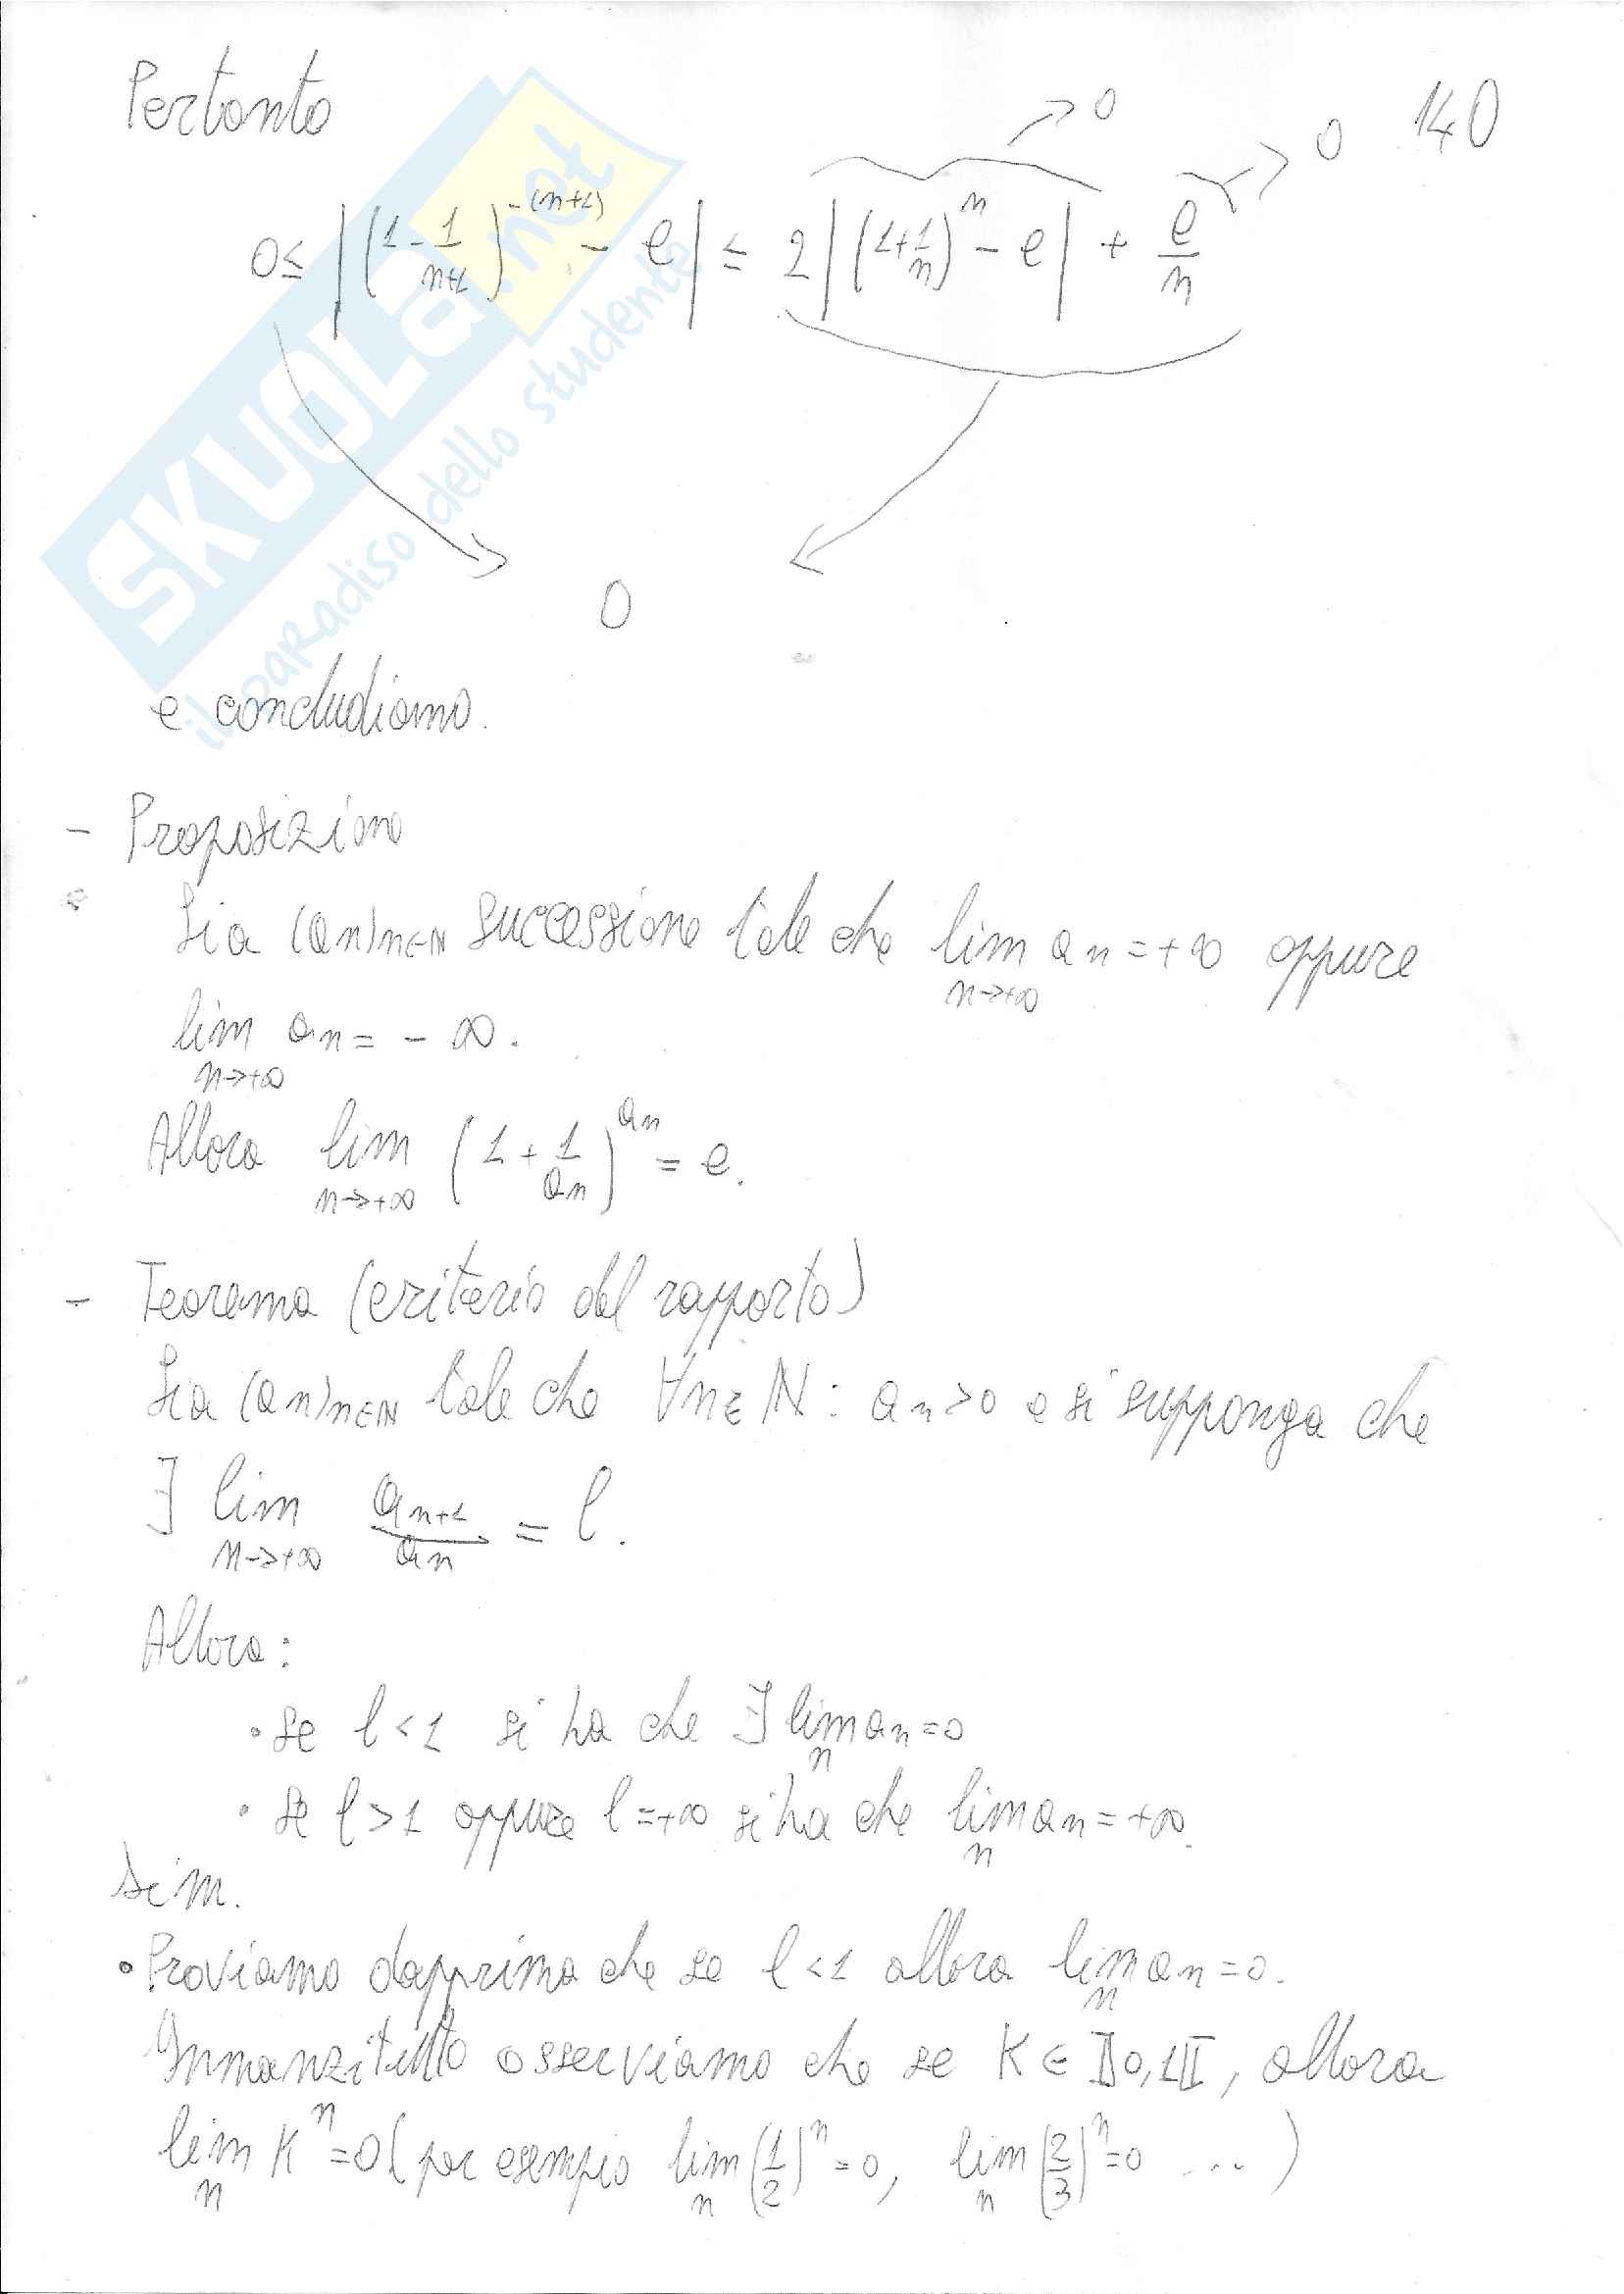 Pertanto
140
→ 0 → 0
0 ≤ |(1 - 1/(n+1))^{-(n+1)} - e| ≤ 2|(1 + 1/n)^n - e| + e/n
0
e concludiamo.
- Proposizione
Sia (an)n∈N successione tale che lim n→+∞ an = +∞ oppure
lim n→+∞ an = -∞.
Allora lim n→+∞ (1 + 1/an)^{an} = e.
- Teorema (criterio del rapporto)
Sia (an)n∈N tale che ∀n∈N : an>0 e si supponga che
∃ lim n→+∞ an+1/an = l.
Allora:
• se l<1 si ha che ∃ lim n an=0
• se l>1 oppure l=+∞ si ha che lim n an=+∞.
Dim.
• Proviamo dapprima che se l<1 allora lim n an=0.
Innanzitutto osserviamo che se K ∈ ]0,1[, allora
lim n K^n=0 (per esempio lim n (1/2)^n=0, lim n (2/3)^n=0 ...)
SKUOLA.net
il paradiso dello studente